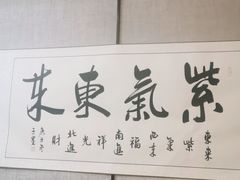 紫氣東来
東来
紫
氣
西来
福
南進
祥
光
北進
財